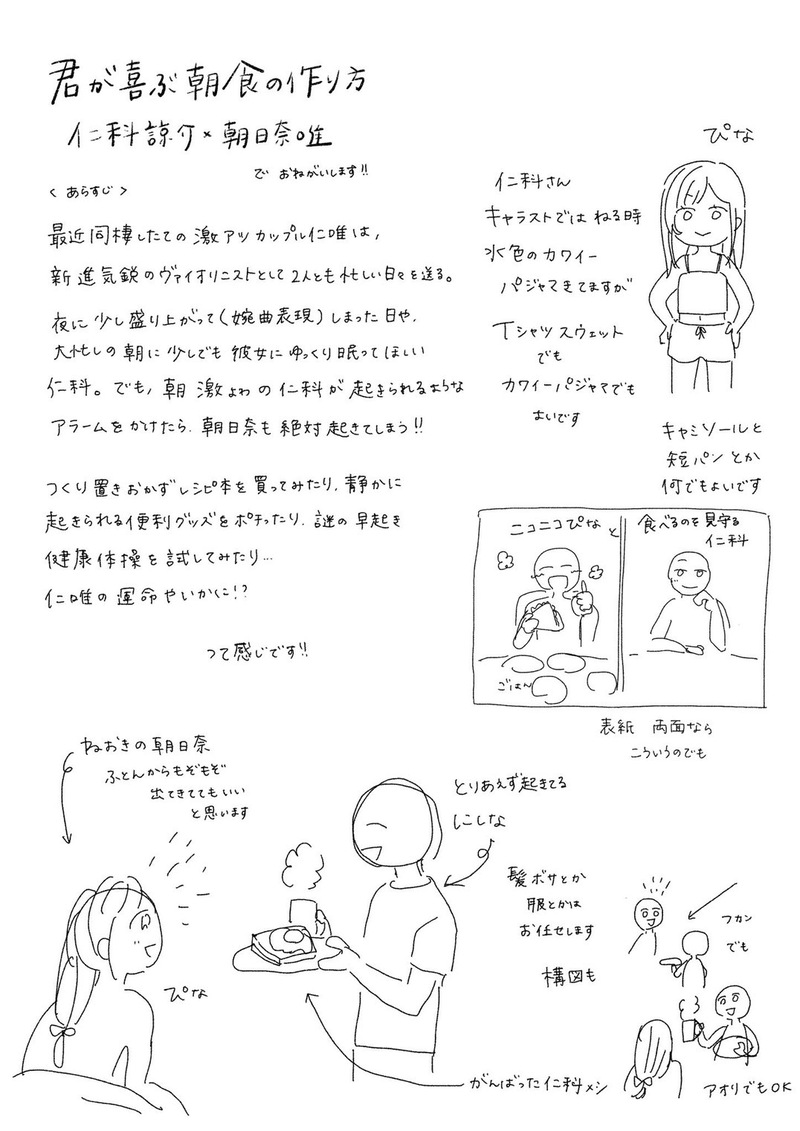 君が喜ぶ朝食の作り方
仁科諒介×朝日奈唯
で おねがいします!!
< あらすじ >
最近同棲したての激アツカップル仁唯は、
新進気鋭のヴァイオリニストとして2人とも忙しい日々を送る。
夜に少し盛り上がって(婉曲表現)しまった日や、
大忙しの朝に少しでも彼女にゆっくり眠ってほしい
仁科。でも、朝激よわの仁科が起きられるような
アラームをかけたら、朝日奈も絶対起きてしまう!!
つくり置きおかずレシピ本を買ってみたり、静かに
起きられる便利グッズをポチったり、謎の早起き
健康体操を試してみたり…
仁唯の運命やいかに!?
って感じです!!
ぴな
仁科さん
キャラストではねる時
水色のカワイー
パジャマきてますが
Tシャツスウェット
でも
カワイーパジャマでも
よいです
キャミソールと
短パンとか
何でもよいです
ニコニコぴなと
食べるのを見守る
仁科
ごはん
表紙 両面なら
こういうのでも
ねおきの朝日奈
ふとんからもぞもぞ
出てきててもいい
と思います
とりあえず起きてる
にしな
髪ボサとか
服とかは
お任せします
構図も
フカン
でも
ぴな
がんばった仁科メシ
アオリでもOK